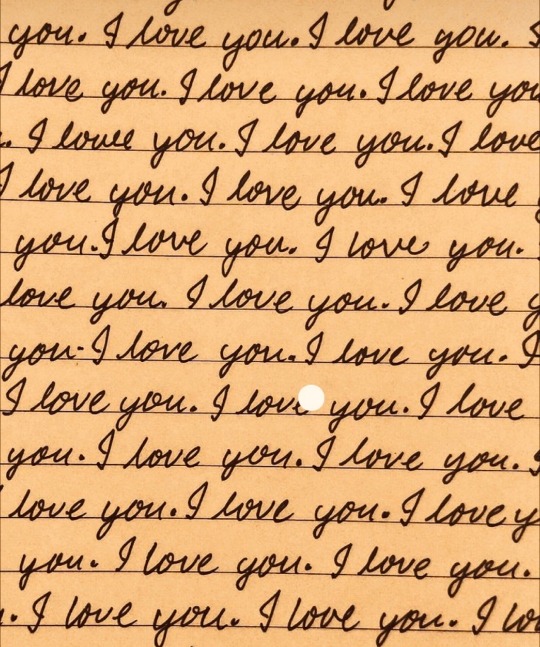 you. I love you. I love you.
I love you. I love you. I love you
. I love you. I love you. I love
I love you. I love you. I love
you. I love you. I love you.
love you. I love you. I love
you. I love you. I love you. I
I love you. I love you. I love
you. I love you. I love you.
love you. I love you. I love y
you. I love you. I love you.
. I love you. I love you. I lo